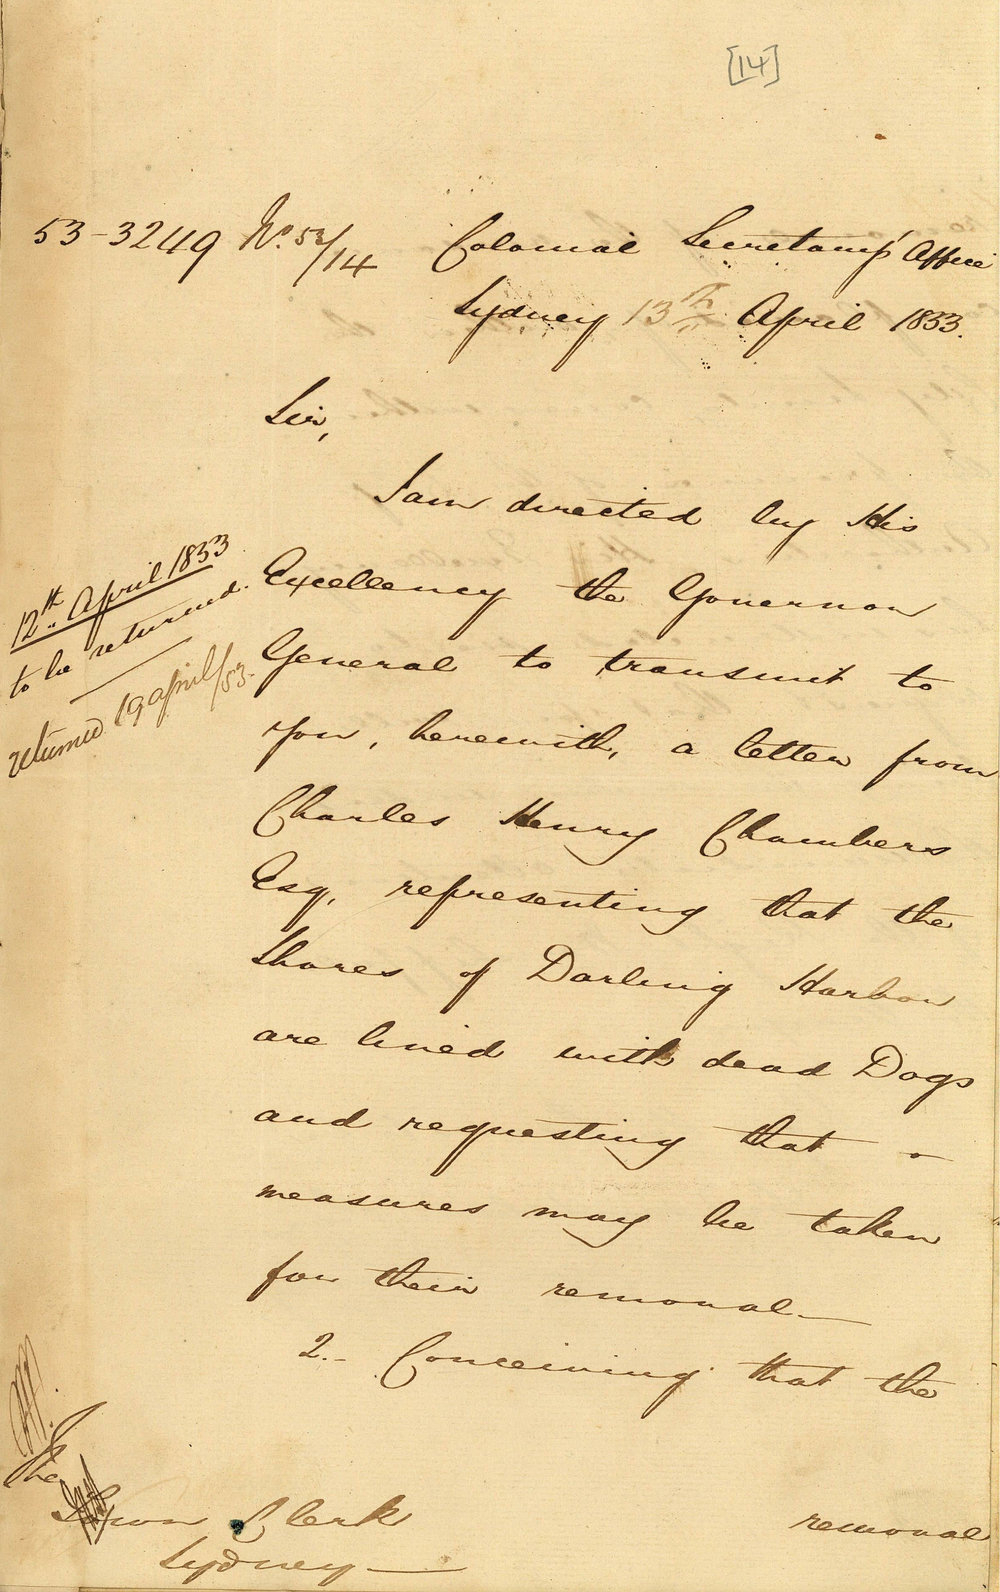 [14]
53-3249 No. 53/14 Colonial Secretary's Office
Sydney 13th April 1853.
Sir,
I am directed by His
Excellency the Governor
General to transmit to
you, herewith, a letter from
Charles Henry Chambers
Esq, representing that the
Shores of Darling Harbor
are lined with dead Dogs
and requesting that
measures may be taken
for their removal—
2.- Conceiving that the
12th April 1853
to be returned.
returned 19 april/53.
The
Town Clerk
Sydney —
removal